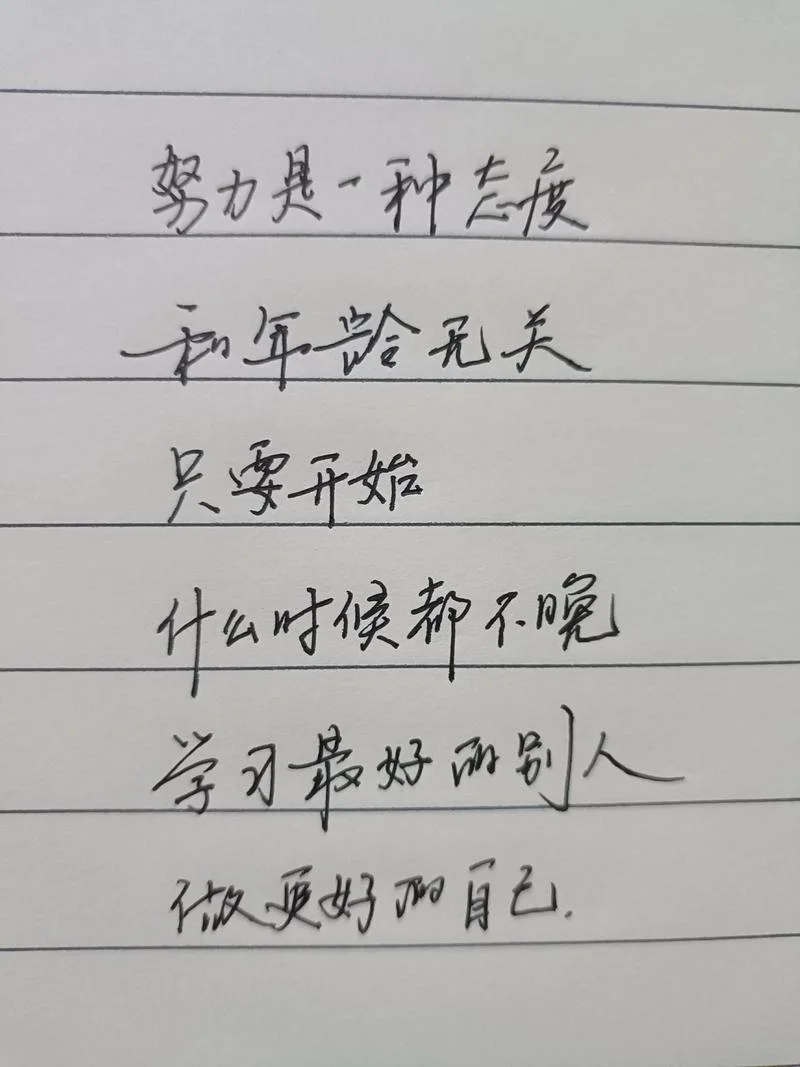 努力是一种态度
和年龄无关
只要开始
什么时候都不晚
学习最好的别人
做更好的自己.